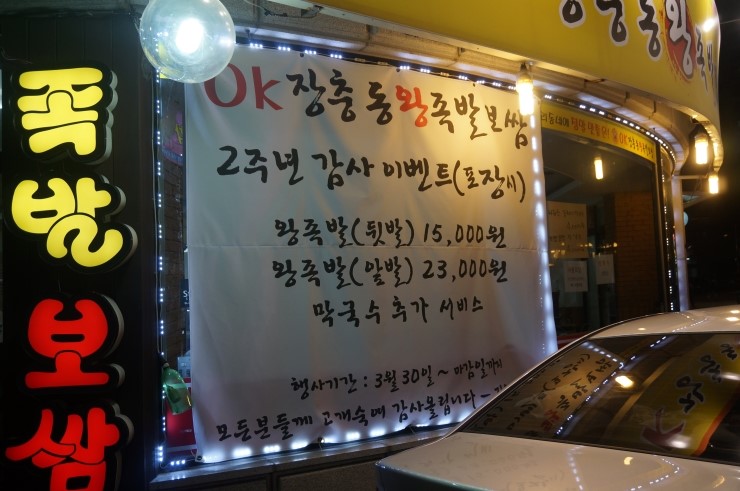 족발보쌈
Ok장충동왕족발보쌈
2주년 감사 이벤트(포장시)
왕족발(뒷발) 15,000원
왕족발(앞발) 23,000원
막국수 추가 서비스
행사기간 : 3월 30일 ~ 마감일까지
모든분들께 고개숙여 감사올립니다
충동왕족발